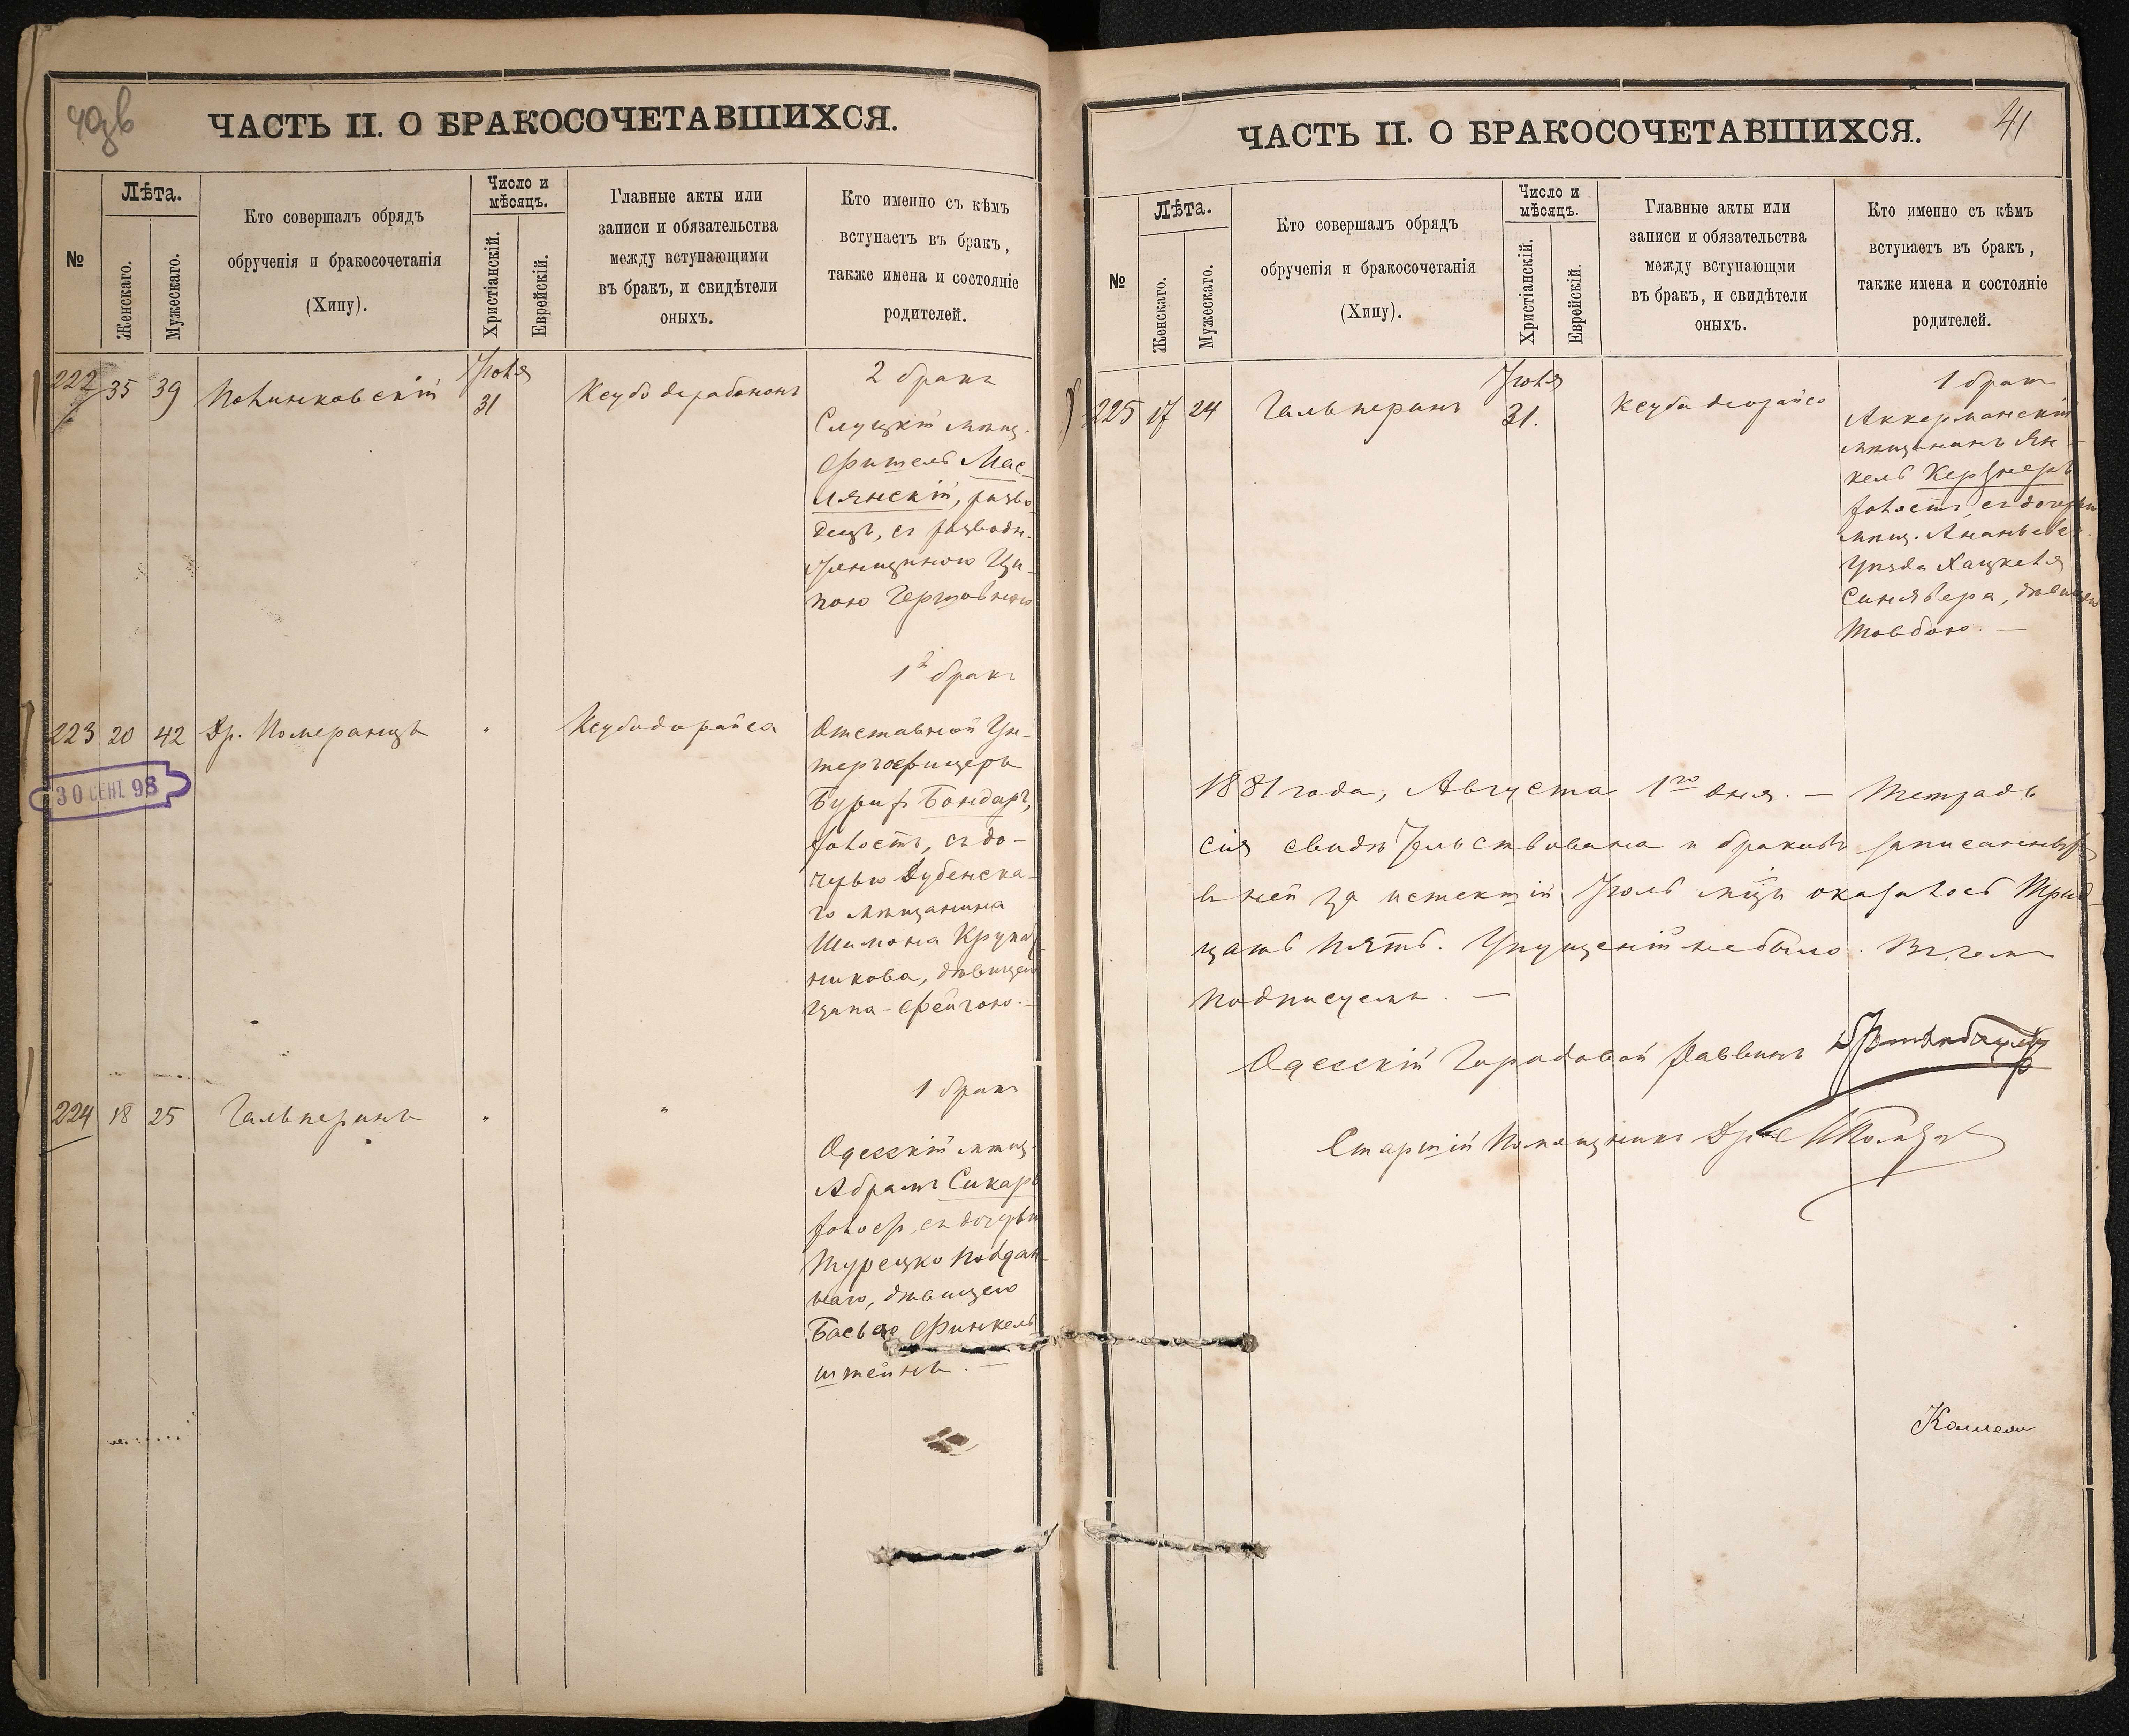 40об
ЧАСТЬ II. О БРАКОСОЧЕТАВШИХСЯ.
№
Лѣта.
Женскаго.
Мужескаго.
Кто совершалъ обрядъ
обрученія и бракосочетанія
(Хипу).
Число и
мѣсяцъ.
Христіанскій.
Еврейскій.
Главные акты или
записи и обязательства
между вступающими
въ бракъ, и свидѣтели
оныхъ.
Кто именно съ кѣмъ
вступаетъ въ бракъ,
также имена и состояніе
родителей.
222 35 39 Полинковскій
Іюля
31
Ксубо дерабононъ
2 бракъ
Слуцкій мѣщ.
Фишель Мас-
лянскій, разво-
децъ, съ разводн.
женщиною Ци-
пою Гершовною
223 20 42 Др. Померанцъ "
Ксубодорайса
1й бракъ
Отставной Ун-
теръ офицеръ
Бондарь,
холостъ, съ до-
черью Дубенска-
го мѣщанина
Шимона Круп
никова, дѣвицею
Ципа-Фейгою.—
30 СЕНТ. 98
224 18 25 Гальперинъ " "
1 бракъ
Одесскій мѣщ.
Абрамъ Сикаръ
холост, съ дочерью
Турецко поддан-
наго, дѣвицею
Басьею Финкель
штейнъ.—
41
ЧАСТЬ II. О БРАКОСОЧЕТАВШИХСЯ.
№
Лѣта.
Женскаго.
Мужескаго.
Кто совершалъ обрядъ
обрученія и бракосочетанія
(Хипу).
Число и
мѣсяцъ.
Христіанскій.
Еврейскій.
Главные акты или
записи и обязательства
между вступающми
въ бракъ, и свидѣтели
оныхъ.
Кто именно съ кѣмъ
вступаетъ въ бракъ,
также имена и состояніе
родителей.
225 17 24 Гальперинъ
Іюля
31.
Ксуба деорайсо
1 бракъ
Аккерманскій
мѣщанинъ Ян-
кель Керзнеръ
холостъ, съ дочерью
мѣщ. Ананьевск.
Уѣзда Хацкеля
Синявера, дѣвицею
Товбою.—
1881 года, Августа 1го дня.— Тетрадь
сія свидѣтельствована и браковъ записанныхъ
въ ней за истекшій Іюль мцъ оказалось Трид-
цать пять. Упущеній не было. Въ чемъ
подписуемъ.—
Одесскій Городовой Раввинъ
Старшій Помощникъ Др.